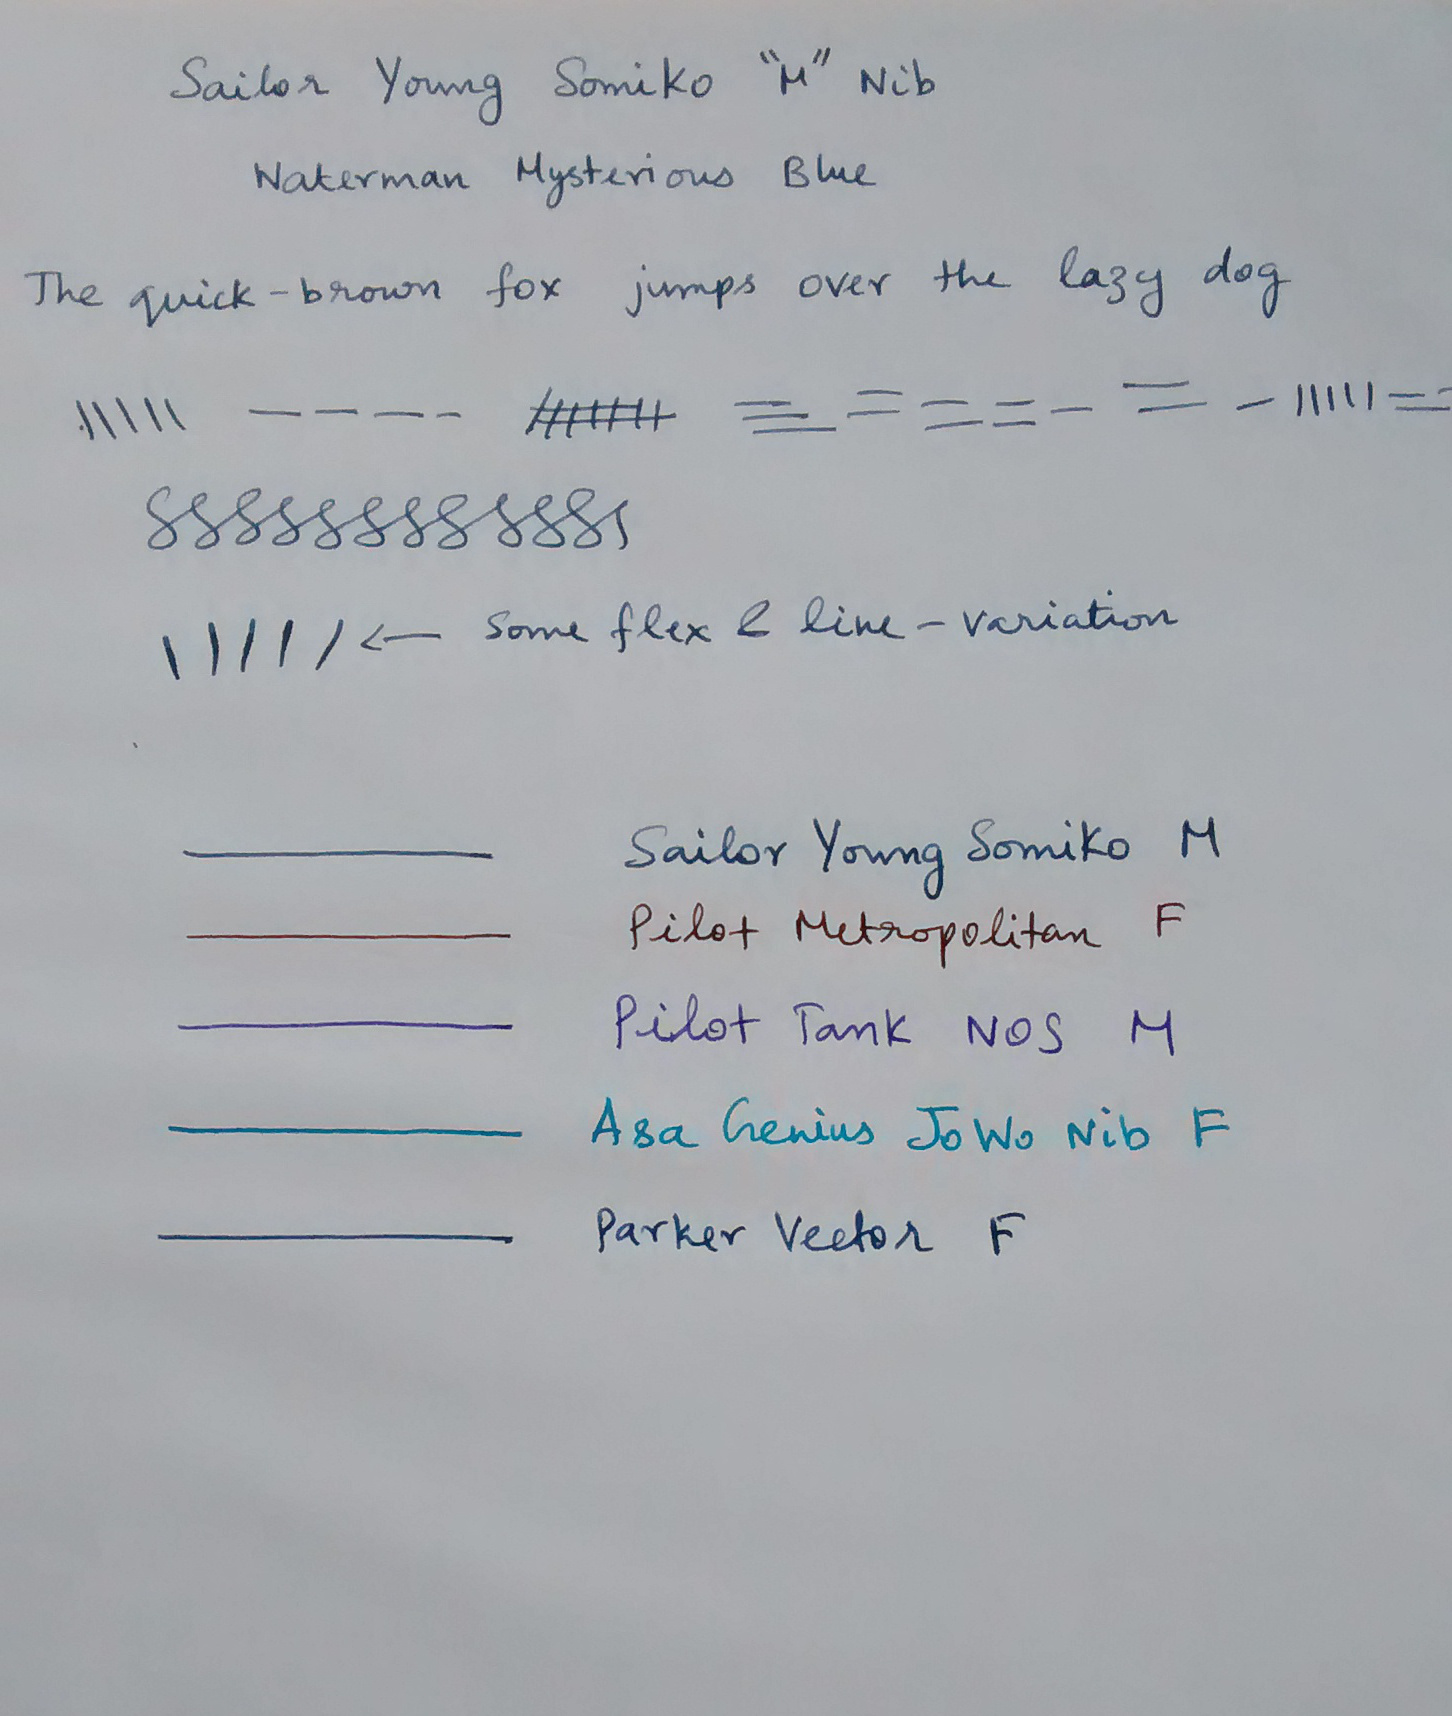 Sailor Young Somiko "M" Nib
Waterman Mysterious Blue
The quick-brown fox jumps over the lazy dog
Some flex & line-variation
Sailor Young Somiko M
Pilot Metropolitan F
Pilot Tank NOS M
Asa Genius JoWo Nib F
Parker Vector F